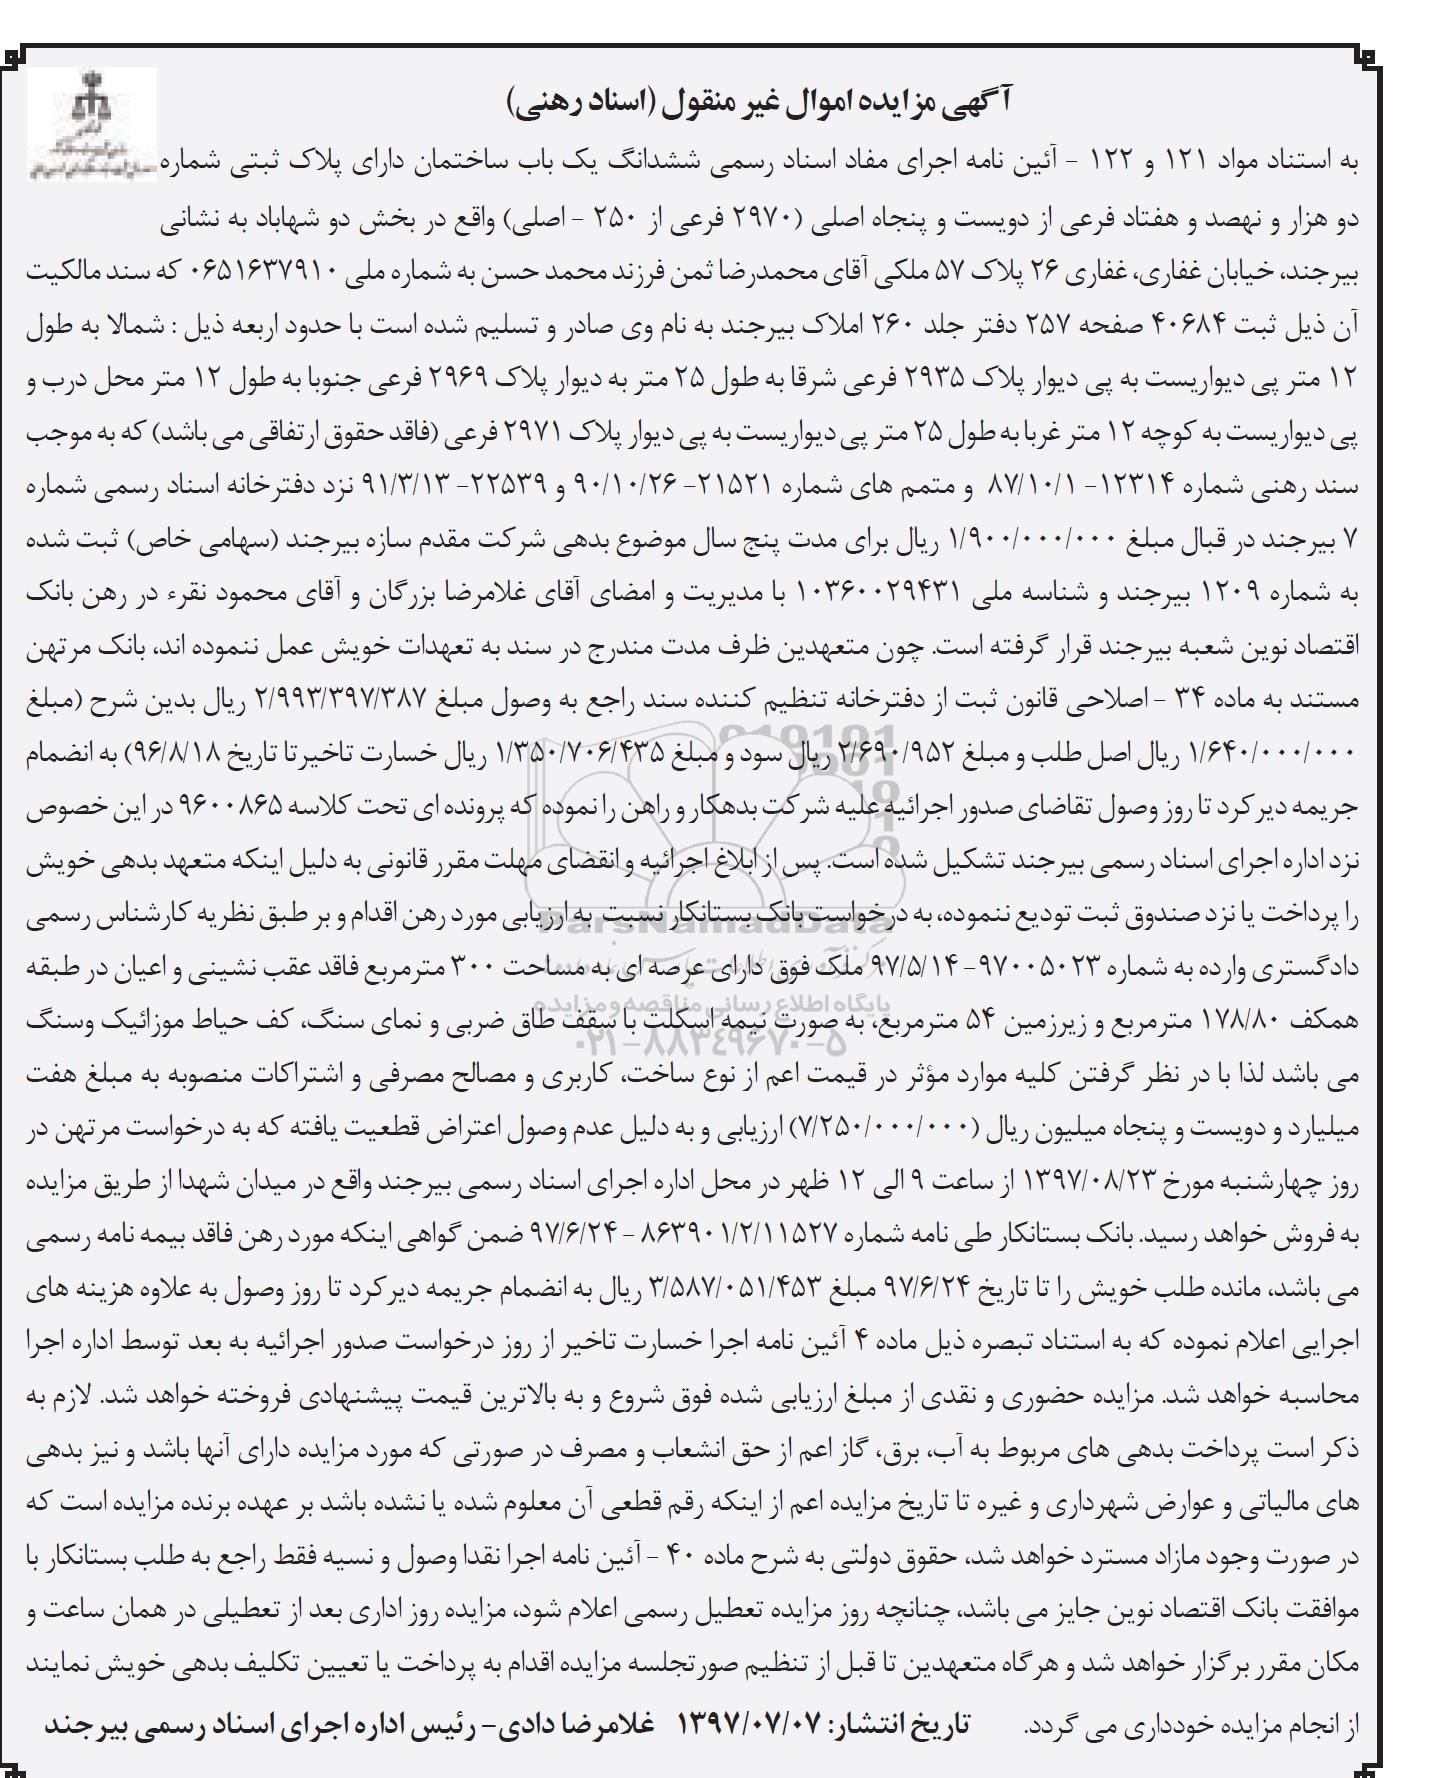 آگهی مزایده اموال غیر منقول (اسناد رهنی)
به استناد مواد ۱۲۱ و ۱۲۲ - آئین نامه اجرای مفاد اسناد رسمی ششدانگ یک باب ساختمان دارای پلاک ثبتی شماره
دو هزار و نهصد و هفتاد فرعی از دویست و پنجاه اصلی (۲۹۷۰ فرعی از ۲۵۰ - اصلی) واقع در بخش دو شهاباد به نشانی
بیرجند، خیابان غفاری، غفاری ۲۶ پلاک ۵۷ ملکی آقای محمدرضا ثمن فرزند محمد حسن به شماره ملی ۰۶۵۱۶۳۷۹۱۰ که سند مالکیت
آن ذیل ثبت ۴۰۶۸۴ صفحه ۲۵۷ دفتر جلد ۲۶۰ املاک بیرجند به نام وی صادر و تسلیم شده است با حدود اربعه ذیل : شمالا به طول
۱۲ متر پی دیواریست به پی دیوار پلاک ۲۹۳۵ فرعی شرقا به طول ۲۵ متر به دیوار پلاک ۲۹۶۹ فرعی جنوبا به طول ۱۲ متر محل درب و
پی دیواریست به کوچه ۱۲ متر غربا به طول ۲۵ متر پی دیواریست به پی دیوار پلاک ۲۹۷۱ فرعی (فاقد حقوق ارتفاقی می باشد) که به موجب
سند رهنی شماره ۱۲۳۱۴- ۸۷/۱۰/۱ و متمم های شماره ۲۱۵۲۱- ۹۰/۱۰/۲۶ و ۲۲۵۳۹- ۹۱/۳/۱۳ نزد دفترخانه اسناد رسمی شماره
۷ بیرجند در قبال مبلغ ۱/۹۰۰/۰۰۰/۰۰۰ ریال برای مدت پنج سال موضوع بدهی شرکت مقدم سازه بیرجند (سهامی خاص) ثبت شده
به شماره ۱۲۰۹ بیرجند و شناسه ملی ۱۰۳۶۰۰۲۹۴۳۱ با مدیریت و امضای آقای غلامرضا بزرگان و آقای محمود نقرء در رهن بانک
اقتصاد نوین شعبه بیرجند قرار گرفته است. چون متعهدین ظرف مدت مندرج در سند به تعهدات خویش عمل ننموده اند، بانک مرتهن
مستند به ماده ۳۴ - اصلاحی قانون ثبت از دفترخانه تنظیم کننده سند راجع به وصول مبلغ ۲/۹۹۳/۳۹۷/۳۸۷ ریال بدین شرح (مبلغ
۱/۶۴۰/۰۰۰/۰۰۰ ریال اصل طلب و مبلغ ۲/۶۹۰/۹۵۲ ریال سود و مبلغ ۱/۳۵۰/۷۰۶/۴۳۵ ریال خسارت تاخیرتا تاریخ ۹۶/۸/۱۸) به انضمام
جریمه دیرکرد تا روز وصول تقاضای صدور اجرائیه علیه شرکت بدهکار و راهن را نموده که پرونده ای تحت کلاسه ۹۶۰۰۸۶۵ در این خصوص
نزد اداره اجرای اسناد رسمی بیرجند تشکیل شده است. پس از ابلاغ اجرائیه و انقضای مهلت مقرر قانونی به دلیل اینکه متعهد بدهی خویش
را پرداخت یا نزد صندوق ثبت تودیع ننموده، به درخواست بانک بستانکار نسبت به ارزیابی مورد رهن اقدام و بر طبق نظریه کارشناس رسمی
ParsNamadData
دادگستری وارده به شماره ۹۷۰۰۵۰۲۳- ۹۷/۵/۱۴ ملک فوق دارای عرصه ای به مساحت ۳۰۰ مترمربع فاقد عقب نشینی و اعیان در طبقه
پایگاه اطلاع رسانی مناقصه و مزایده
همکف ۱۷۸/۸۰ مترمربع و زیرزمین ۵۴ مترمربع، به صورت نیمه اسکلت با سقف طاق ضربی و نمای سنگ، کف حیاط موزائیک وسنگ
۰۲۱-۸۸۳۴۹۶۷۰-۵
می باشد لذا با در نظر گرفتن کلیه موارد مؤثر در قیمت اعم از نوع ساخت، کاربری و مصالح مصرفی و اشتراکات منصوبه به مبلغ هفت
میلیارد و دویست و پنجاه میلیون ریال (۷/۲۵۰/۰۰۰/۰۰۰) ارزیابی و به دلیل عدم وصول اعتراض قطعیت یافته که به درخواست مرتهن در
روز چهارشنبه مورخ ۱۳۹۷/۰۸/۲۳ از ساعت ۹ الی ۱۲ ظهر در محل اداره اجرای اسناد رسمی بیرجند واقع در میدان شهدا از طریق مزایده
به فروش خواهد رسید. بانک بستانکار طی نامه شماره ۸۶۳۹۰۱/۲/۱۱۵۲۷ - ۹۷/۶/۲۴ ضمن گواهی اینکه مورد رهن فاقد بیمه نامه رسمی
می باشد، مانده طلب خویش را تا تاریخ ۹۷/۶/۲۴ مبلغ ۳/۵۸۷/۰۵۱/۴۵۳ ریال به انضمام جریمه دیرکرد تا روز وصول به علاوه هزینه های
اجرایی اعلام نموده که به استناد تبصره ذیل ماده ۴ آئین نامه اجرا خسارت تاخیر از روز درخواست صدور اجرائیه به بعد توسط اداره اجرا
محاسبه خواهد شد. مزایده حضوری و نقدی از مبلغ ارزیابی شده فوق شروع و به بالاترین قیمت پیشنهادی فروخته خواهد شد. لازم به
ذکر است پرداخت بدهی های مربوط به آب، برق، گاز اعم از حق انشعاب و مصرف در صورتی که مورد مزایده دارای آنها باشد و نیز بدهی
های مالیاتی و عوارض شهرداری و غیره تا تاریخ مزایده اعم از اینکه رقم قطعی آن معلوم شده یا نشده باشد بر عهده برنده مزایده است که
در صورت وجود مازاد مسترد خواهد شد، حقوق دولتی به شرح ماده ۴۰ - آئین نامه اجرا نقدا وصول و نسیه فقط راجع به طلب بستانکار با
موافقت بانک اقتصاد نوین جایز می باشد، چنانچه روز مزایده تعطیل رسمی اعلام شود، مزایده روز اداری بعد از تعطیلی در همان ساعت و
مکان مقرر برگزار خواهد شد و هرگاه متعهدین تا قبل از تنظیم صورتجلسه مزایده اقدام به پرداخت یا تعیین تکلیف بدهی خویش نمایند
از انجام مزایده خودداری می گردد. تاریخ انتشار: ۱۳۹۷/۰۷/۰۷ غلامرضا دادی- رئیس اداره اجرای اسناد رسمی بیرجند